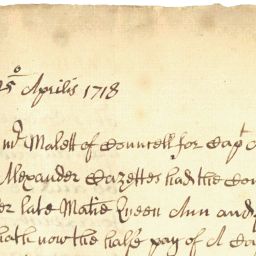 25º Aprilis 1718
Mr Malett of Councell for Capt
Alexander Cazettes had the Com
er late Matie Queen Ann and
hath now the halfe pay of A Ca